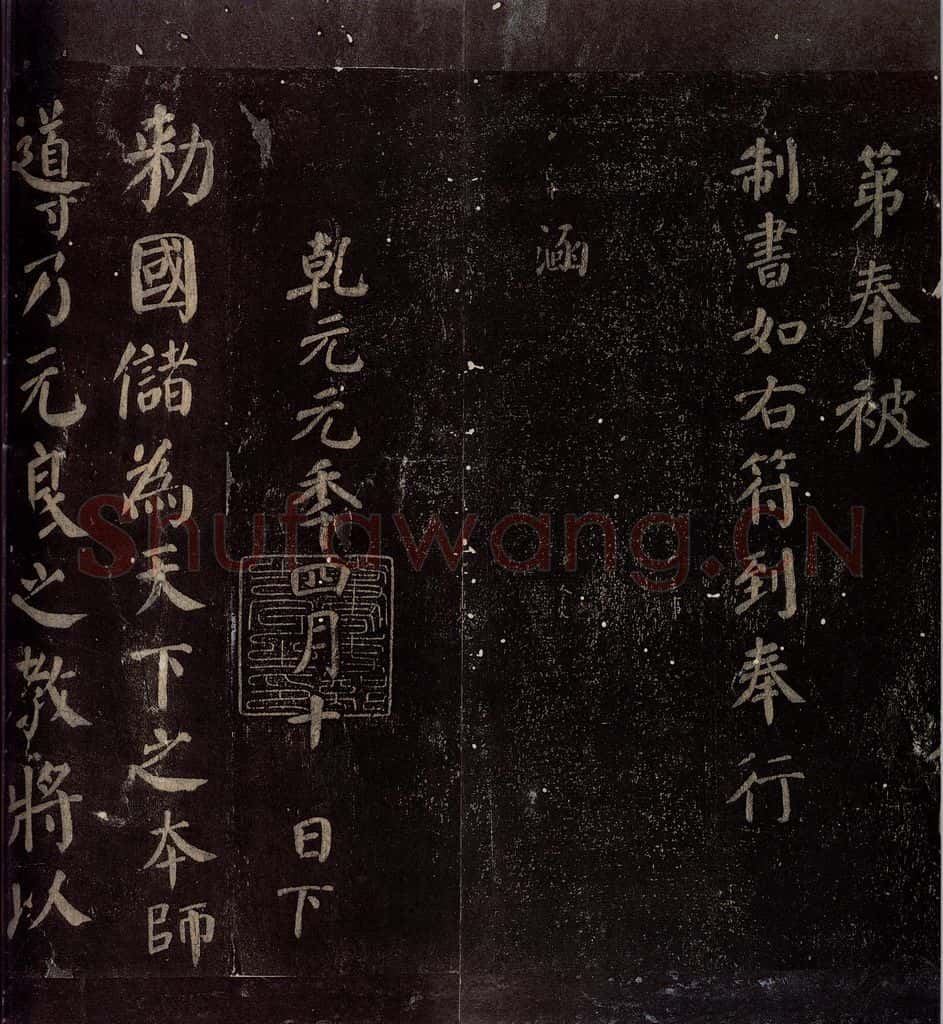 第奉被
制書如右符到奉行
涵
乾元元秊四月十日下
勑國儲為天下之本師
導乃元良之教將以
Shufawang.CN